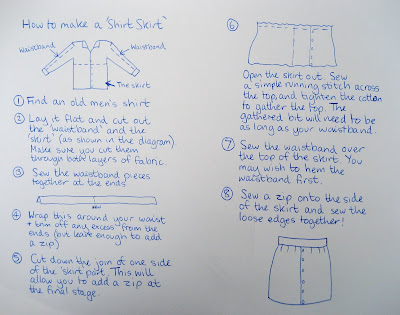 How to make a 'Shirt Skirt'
Waistband
Waistband
The skirt
① Find an old men's shirt
② Lay it flat and cut out
the 'waistband' and the
'skirt' (as shown in the diagram)
Make sure you cut them
through both layers of fabric.
③ Sew the waistband pieces
together at the ends
④ Wrap this around your waist
+ trim off any excess from the
ends (but leave enough to add
a zip)
⑤ Cut down the join of one side
of the 'skirt' part. This will
allow you to add a zip at
the final stage.
⑥
Open the skirt out. Sew
a simple running stitch across
the top, and tighten the cotton
to gather the top. The
gathered bit will need to be
as long as your waistband.
⑦ Sew the waistband over
the top of the skirt. You
may wish to hem the
waistband first.
⑧ Sew a zip onto the side
of the skirt and sew the
loose edges together!